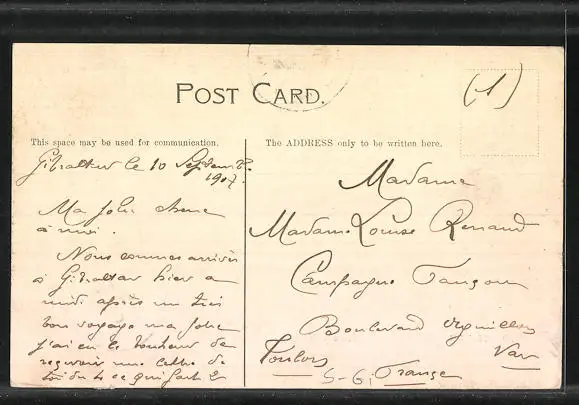 POST CARD.
(1)
This space may be used for communication.
The ADDRESS only to be written here.
Gibraltar le 10 Septembre
1907.
Ma jolie
à moi.
Nous sommes arrivés
à Gibraltar hier a
midi après un très
bon voyage ma Jolie
j'ai eu le bonheur de
recevoir une lettre de
toi du 4 ce qui fait 2
Madame
Madame Louise Renaud
Campagne
Boulevard
Toulon Var
S-G, France